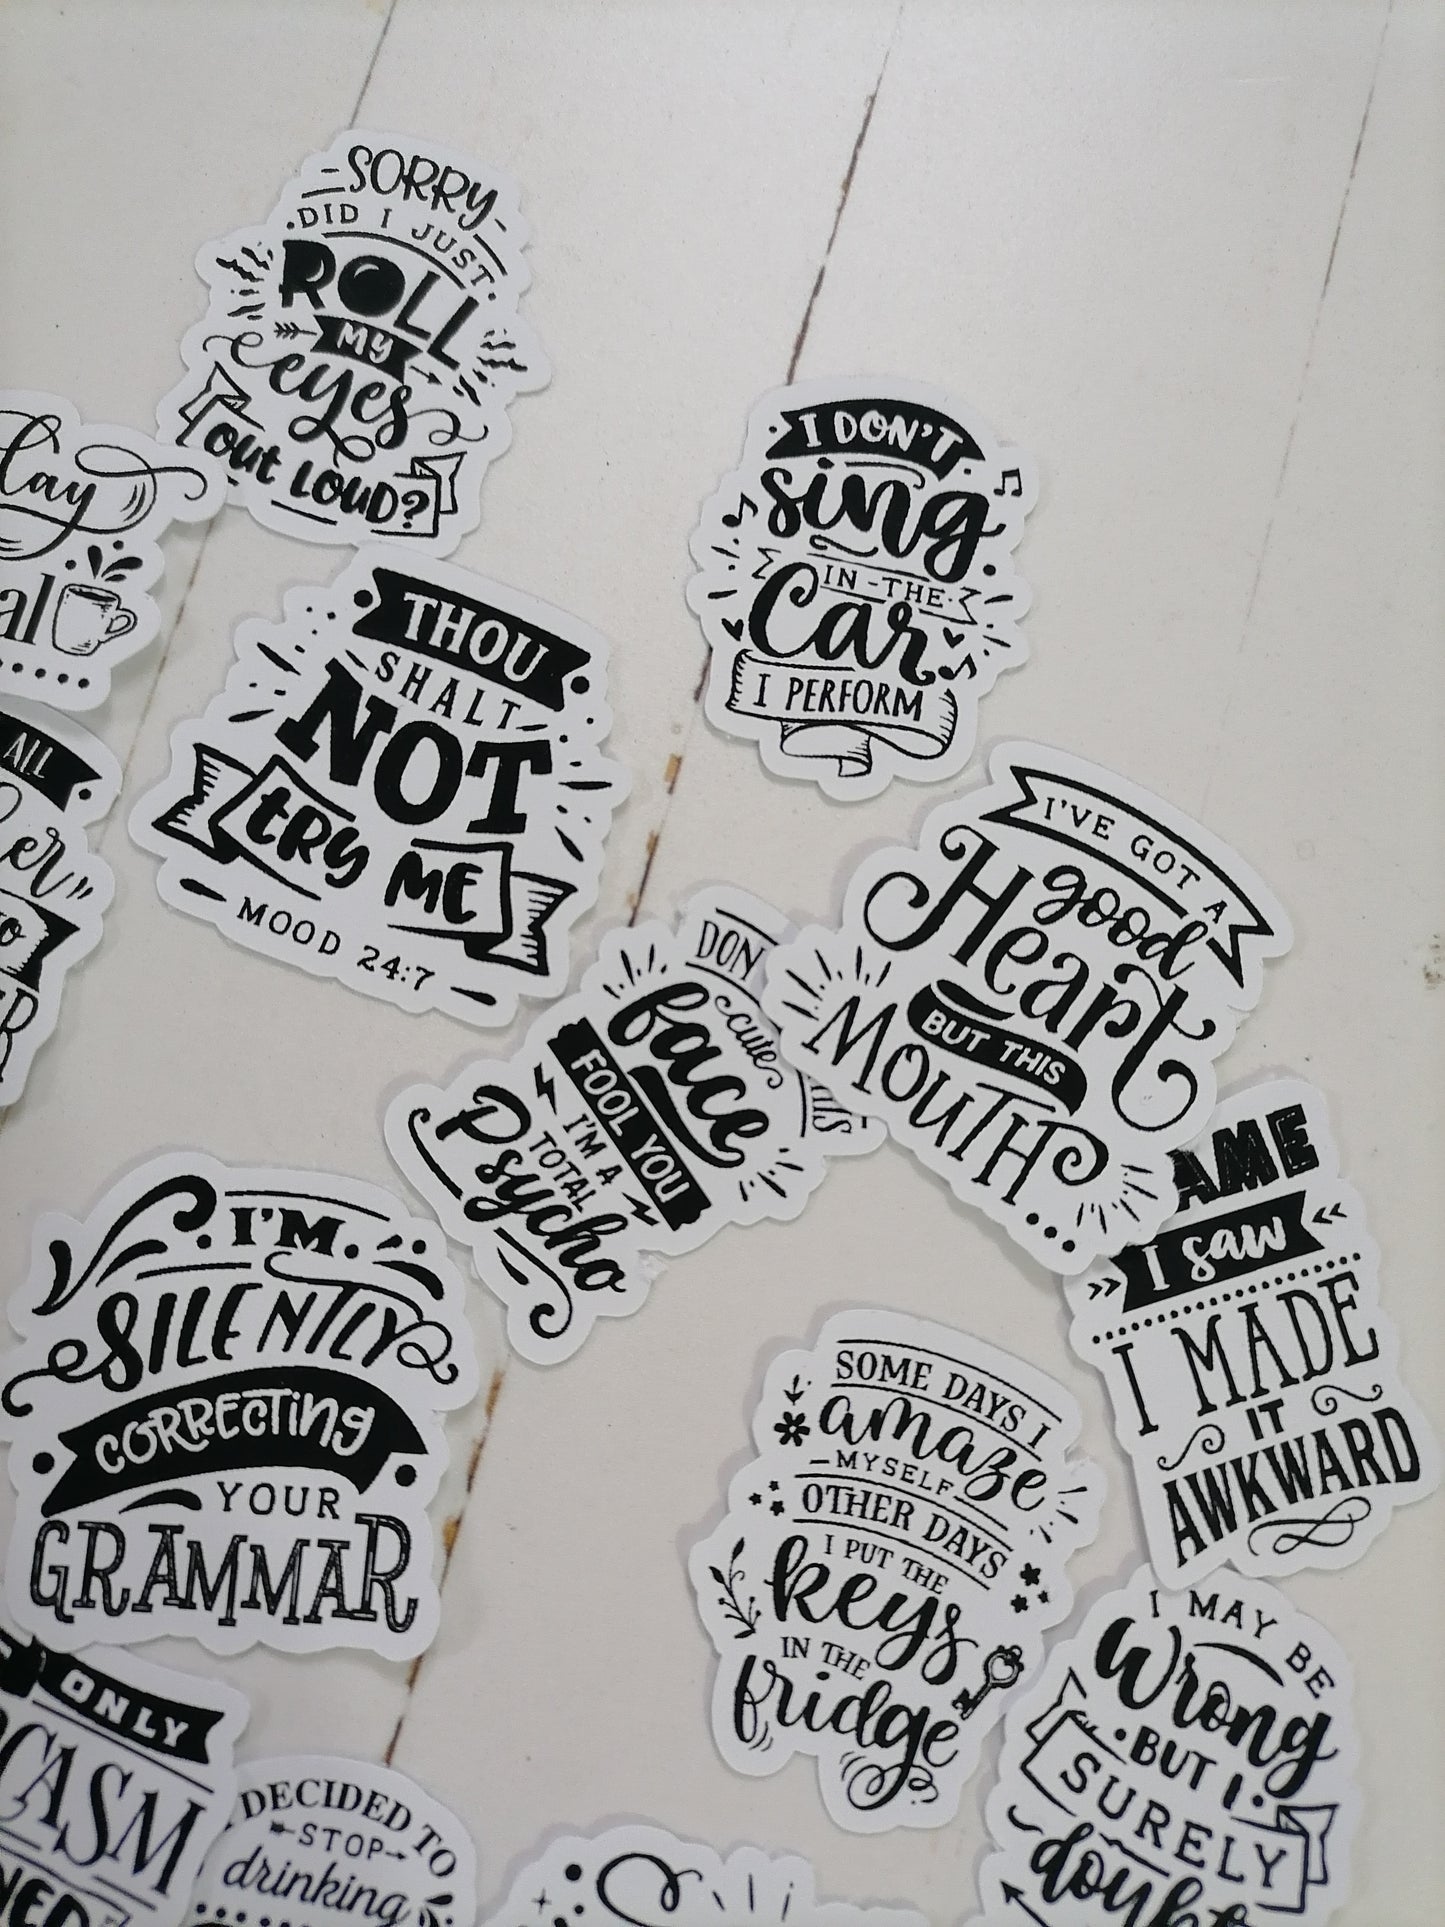 -SORRY-
DID I JUST
ROLL
MY
eyes
out LOUD?
THOU
SHALT
NOT
tRy ME
MOOD 24:7
I DON'T
sing
IN-THE
Car
I PERFORM
I'VE GOT A
good
Heart
BUT THIS
MOUTH...
DON
cute
face
FOOL YOU
I'M A
TOTAL
Psycho
AME
I saw
I MADE
IT
AWKWARD
I'M
SILENTLY
CORRECTING
YOUR
GRAMMAR
SOME DAYS I
amaze
-MYSELF-
OTHER DAYS
I PUT THE
keys
IN THE
fridge
I MAY BE
Wrong
BUT I
SURELY
ALL
ONLY
DECIDED TO
STOP
drinking